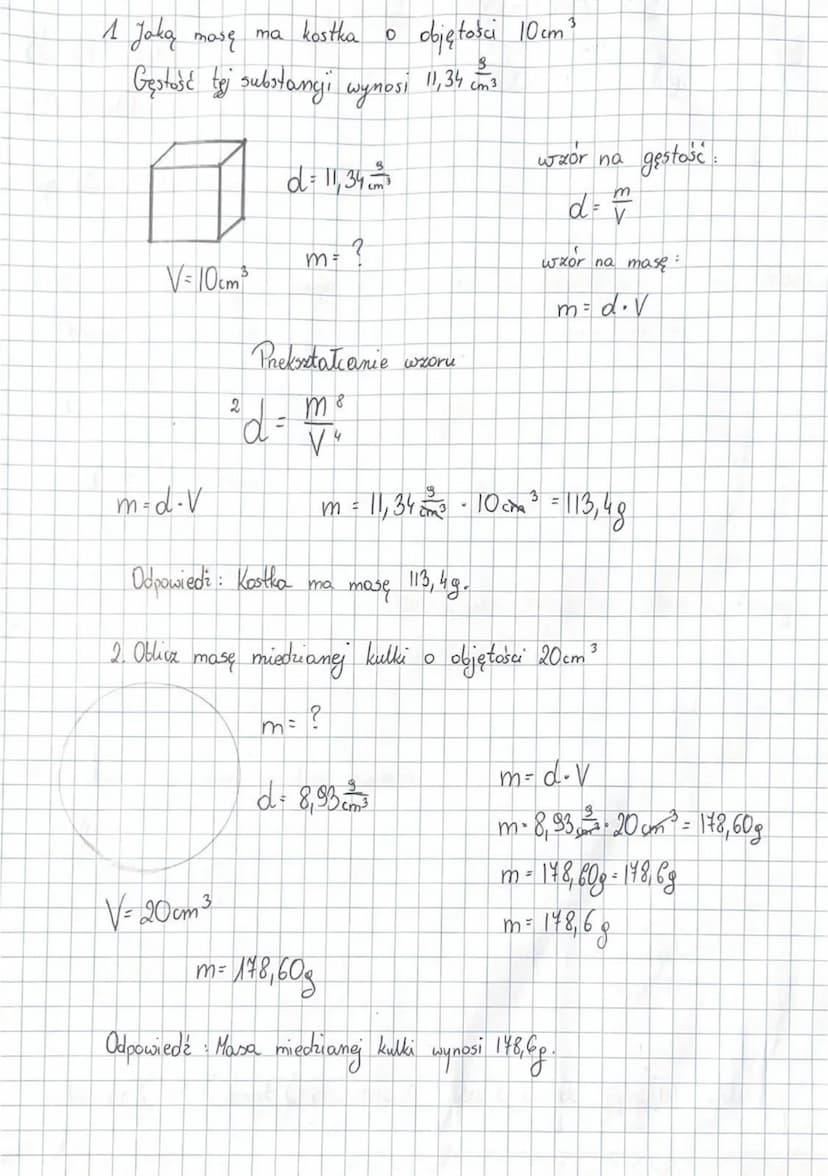 1 Jaką masę ma kostka o objętości 10cm³
Gęstość tej substancji wynosi 11,34 g/cm³
d = 11,34 g/cm³
m = ?
V = 10cm³
wzór na gęstość:
d = m/V
wzór na masę:
m = d · V
Przekształcanie wzoru
² d = m⁸/V⁴
m = d · V
m = 11,34 g/cm³ · 10 cm³ = 113,4g
Odpowiedź: Kostka ma masę 113,4g.
2. Oblicz masę miedzianej kulki o objętości 20cm³
m = ?
d = 8,93 g/cm³
V = 20cm³
m = 178,60g
m = d · V
m = 8,93 g/cm³ · 20 cm³ = 178,60g
m = 178,60g = 178,6g
m = 178,6g
Odpowiedź: Masa miedzianej kulki wynosi 178,6g.